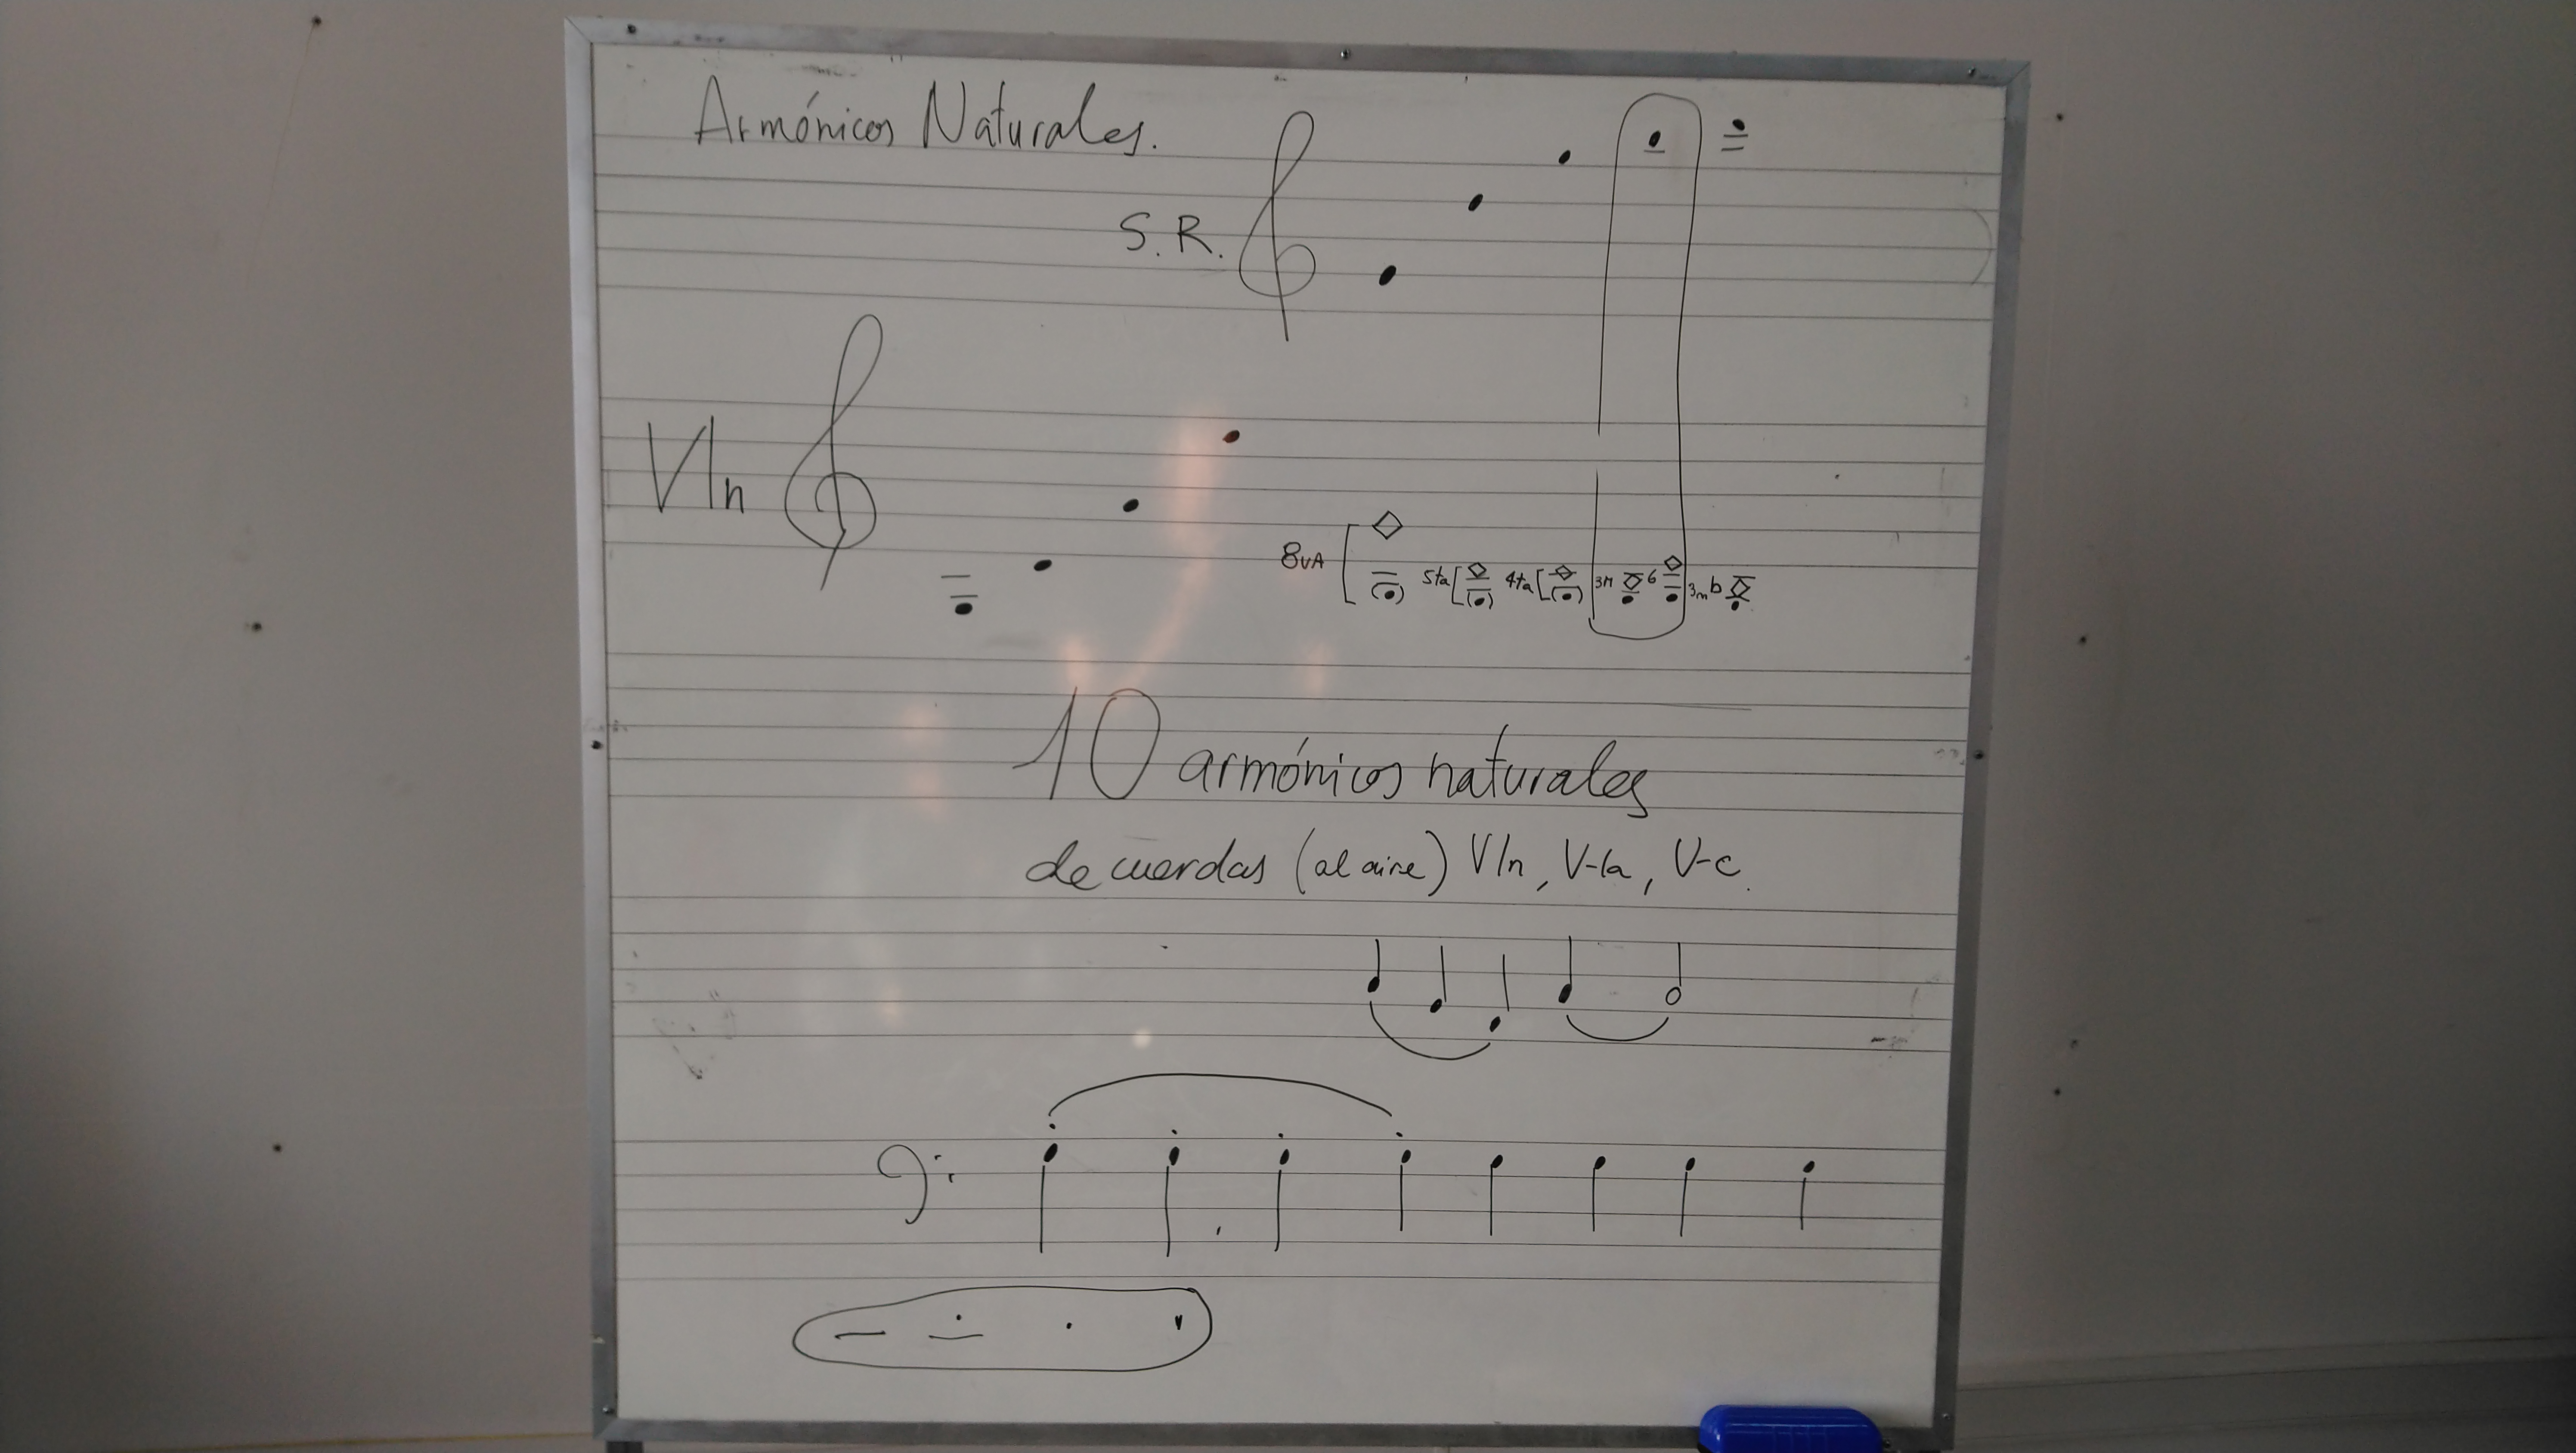 Armónicos Naturales.
S. R.
Vln
8va 5ta 4ta 3M 6 3m b
10 armónicos naturales
de cuerdas (al aire) Vln, V-la, V-c.